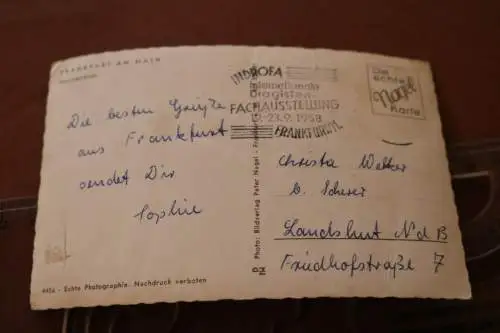 FRANKFURT AM MAIN
Die besten Grüße
aus Frankfurt
sendet Dir
Sophie
4456 - Echte Photographie. Nachdruck verboten
Photo: Bildverlag Peter Nagel - Frankfurt
INDROFA
Internationale
Drogisten-
FACHAUSSTELLUNG
12.-23.9.1958
FRANKFURT/M.
Die
echte
Nagel
Karte
Christa Welker
b. Scherer
Landshut NdB
Friedhofstraße 7